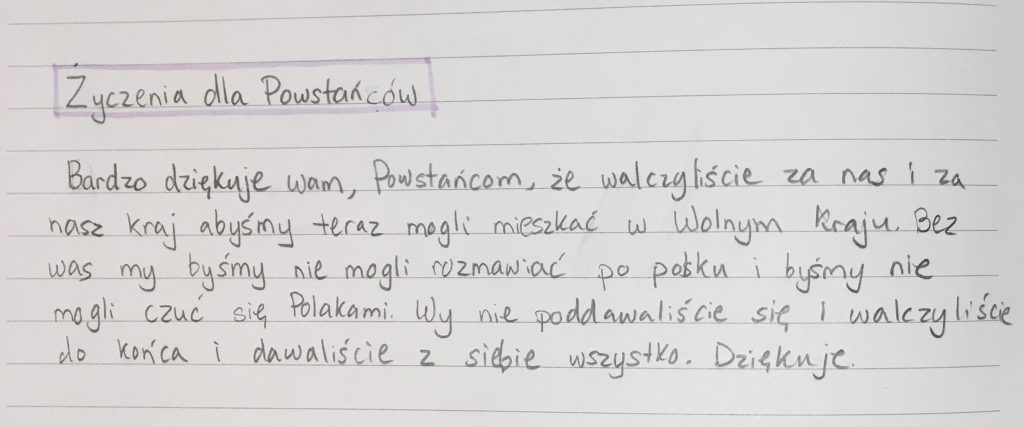 Życzenia dla Powstańców
Bardzo dziękuje wam, Powstańcom, że walczyliście za nas i za
nasz kraj abyśmy teraz mogli mieszkać w Wolnym Kraju. Bez
was my byśmy nie mogli rozmawiać po polsku i byśmy nie
mogli czuć się Polakami. Wy nie poddawaliście się i walczyliście
do końca i dawaliście z siebie wszystko. Dziękuje.